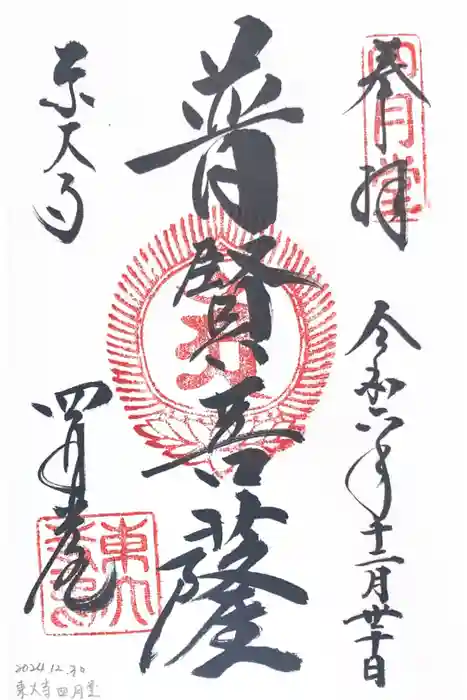 四月堂
奉拝
令和六年十二月卅十日
普賢菩薩
東大寺
四月堂
2024.12.30
東大寺四月堂